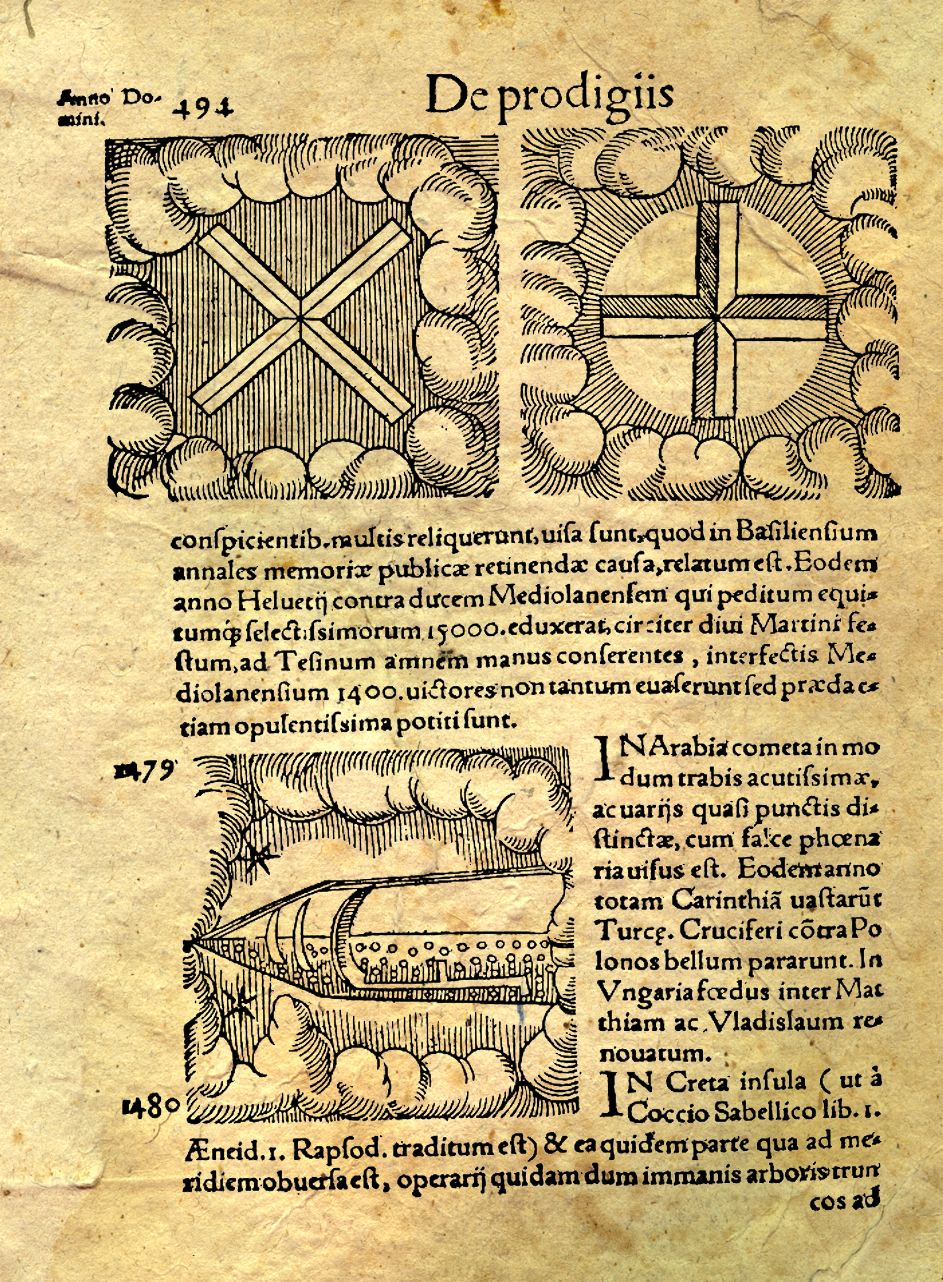 Anno Do-
mini.
494
De prodigiis
conſpicientib. multis reliquerunt, uiſa ſunt, quod in Baſilienſium
annales memoriæ publicæ retinendæ cauſa, relatum eſt. Eodem
anno Heluetij contra ducem Mediolanenſem qui peditum equi-
tumq́; ſelectiſsimorum 15000. eduxerat, circiter diui Martini fe-
ſtum, ad Teſinum amnem manus conſerentes, interfectis Me-
diolanenſium 1400. uictores non tantum euaſerunt ſed præda e-
tiam opulentiſsima potiti ſunt.
1479
IN Arabia cometa in mo
dum trabis acutiſsimæ,
ac uarijs quaſi punctis di-
ſtinctæ, cum falce phœna
ria uiſus eſt. Eodem anno
totam Carinthiã uaſtarũt
Turcę. Cruciferi cõtra Po
lonos bellum pararunt. In
Vngaria fœdus inter Mat
thiam ac Vladislaum re-
nouatum.
1480
IN Creta inſula (ut à
Coccio Sabellico lib. 1.
Æneid. 1. Rapſod. traditum eſt) & ea quidem parte qua ad me-
ridiem obuerſa eſt, operarij quidam dum immanis arboris trun
cos ad